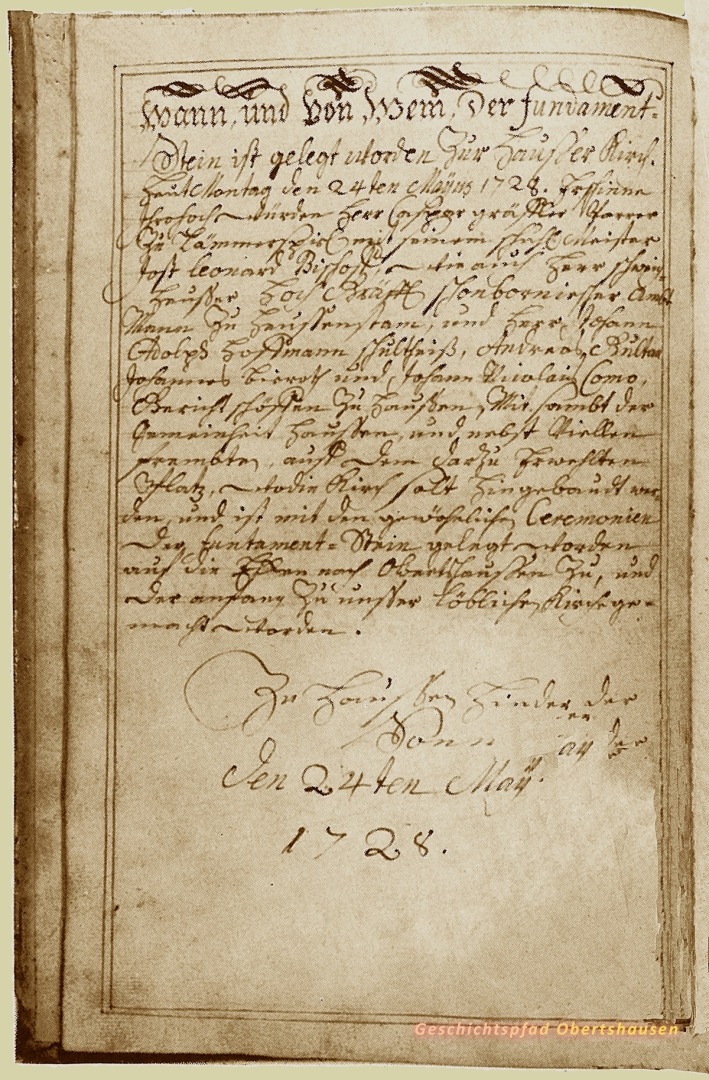 Wann, und Von Wem, Der Fundament-
Stein ist gelegt worden Zur Hausser Kirch.
Heut Montag den 24ten Mayus 1728. Ersinne
Hoch würden Herr Caspar gräffler Pfarrer
Zu Lämmerspiel mit seinem schuhl Meister
Jost Leonard Bischoff, wie auch Herr schwein-
Heusser Hoch Gräffl schönbornischer Ambt
Mann Zu Heussenstam, und Herr Johann
Adolph Hoffmann schultheiß, Andreas
Johannes Bieroth und Johann Nicolaus Como,
Gericht schöffen Zu Haussen, Mit sambt der
Gemeinheit Haussen, und nebst Viellen
frembten, auff dem darzu Erwehlten
Platz, wo die Kirch solt hingebaudt wer-
den, und ist mit den gewöhnlichen Ceremonien
Der Funtament-Stein gelegt worden
auf die Ecken nach Obertshaussen Zu, und
der anfang Zu unsser löblichen Kirch ge-
macht worden.
Zu Haussen Hinder der
Sonn
den 24ten May.
1728.
Geschichtspfad Obertshausen